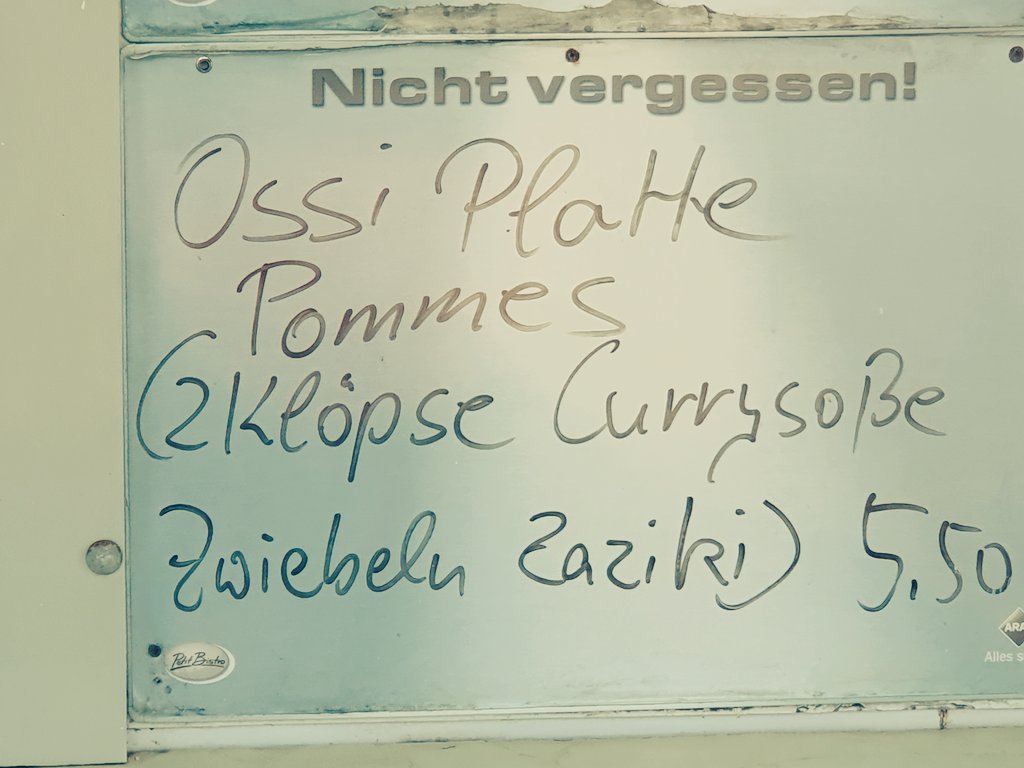 Nicht vergessen!
Ossi Platte
Pommes
(2 Klöpse Currysoße
Zwiebeln Zaziki) 5,50
Petit Bistro
ARA
Alles s